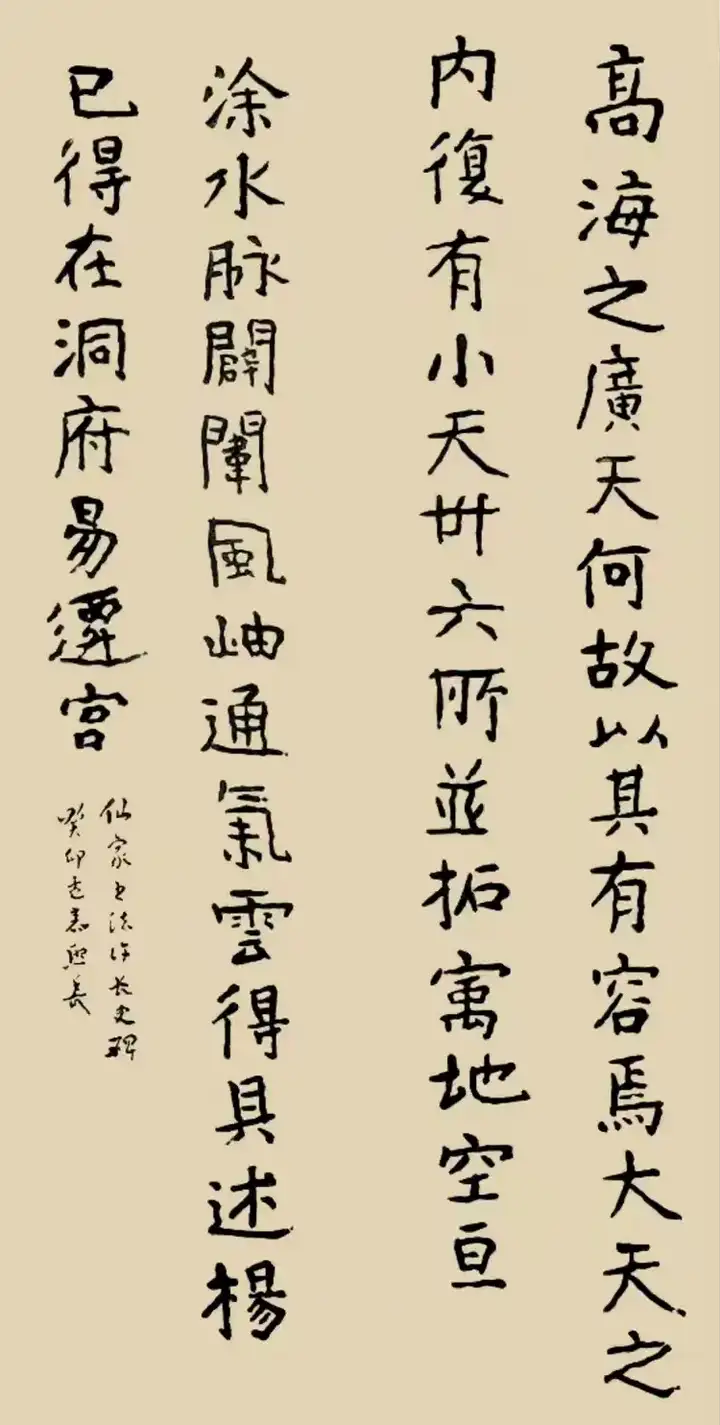 高海之廣天何故以其有容焉大天之
内復有小天卅六所並拓寓地空亘
涂水脉闢闈風岫通氣雲得具述楊
已得在洞府易遷宮
仙家書法許長史碑
癸卯